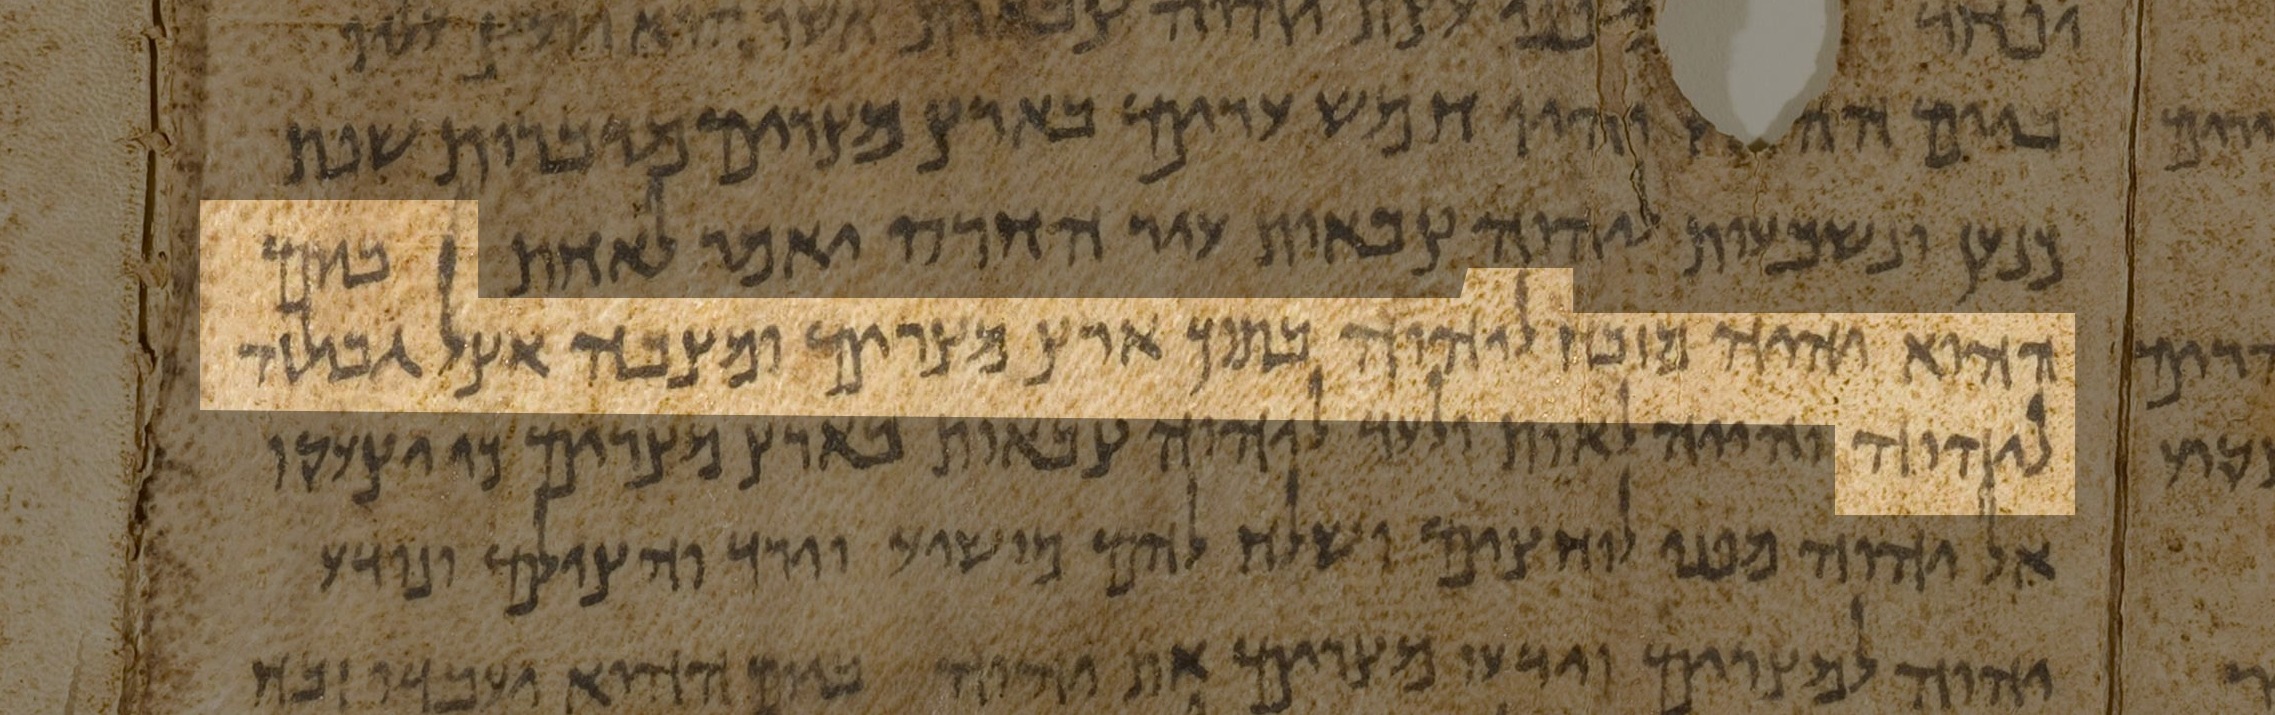 יפחד מפני עצת יהוה צבאות אשר הוא יועץ עליו
ביום ההוא יהיו חמש ערים בארץ מצרים מדברות שפת
כנען ונשבעות ליהוה צבאות עיר החרס יאמר לאחת ביום
ההוא יהיה מזבח ליהוה בתוך ארץ מצרים ומצבה אצל גבולה
ליהוה והיה לאות ולעד ליהוה צבאות בארץ מצרים כי יצעקו
אל יהוה מפני לוחצים ושלח להם מושיע וירד והצילם ונודע
יהוה למצרים וידעו מצרים את יהוה ביום ההוא ועבדו זבח